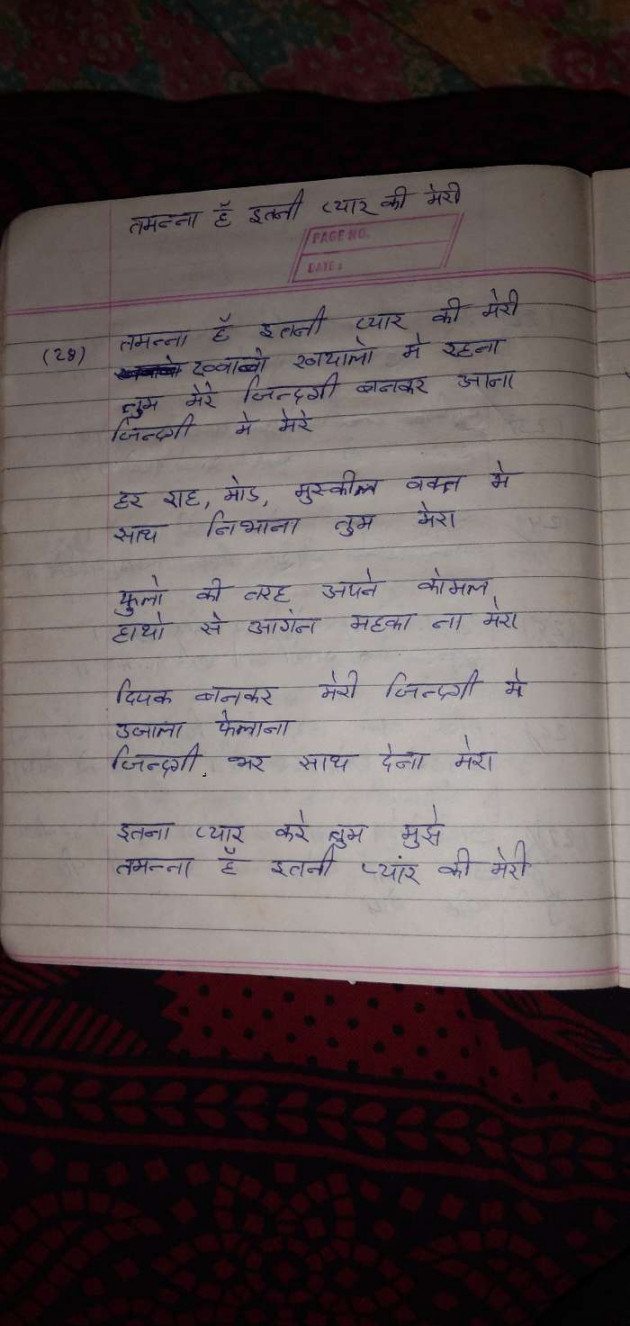 तमन्ना हैं इतनी प्यार की मेरी
PAGE NO.
DATE:
(28) तमन्ना हैं इतनी प्यार की मेरी
ख्वाबो खयालो मे रहना
तुम मेरे जिन्दगी बनकर आना
जिन्दगी मे मेरे
हर राह, मोड, मुस्कील वक्त मे
साथ निभाना तुम मेरा
फुलो की तरह अपने कोमल
हाथो से आगंन महका ना मेरा
दिपक बनकर मेरी जिन्दगी मे
उजाला फेलाना
जिन्दगी भर साथ देना मेरा
इतना प्यार करे तुम मुझे
तमन्ना हैं इतनी प्यांर की मेरी